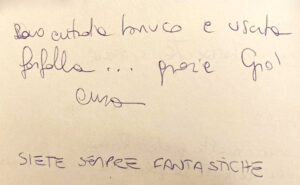 Sono entrata bruco e uscita
farfalla... grazie
SIETE SEMPRE FANTASTICHE